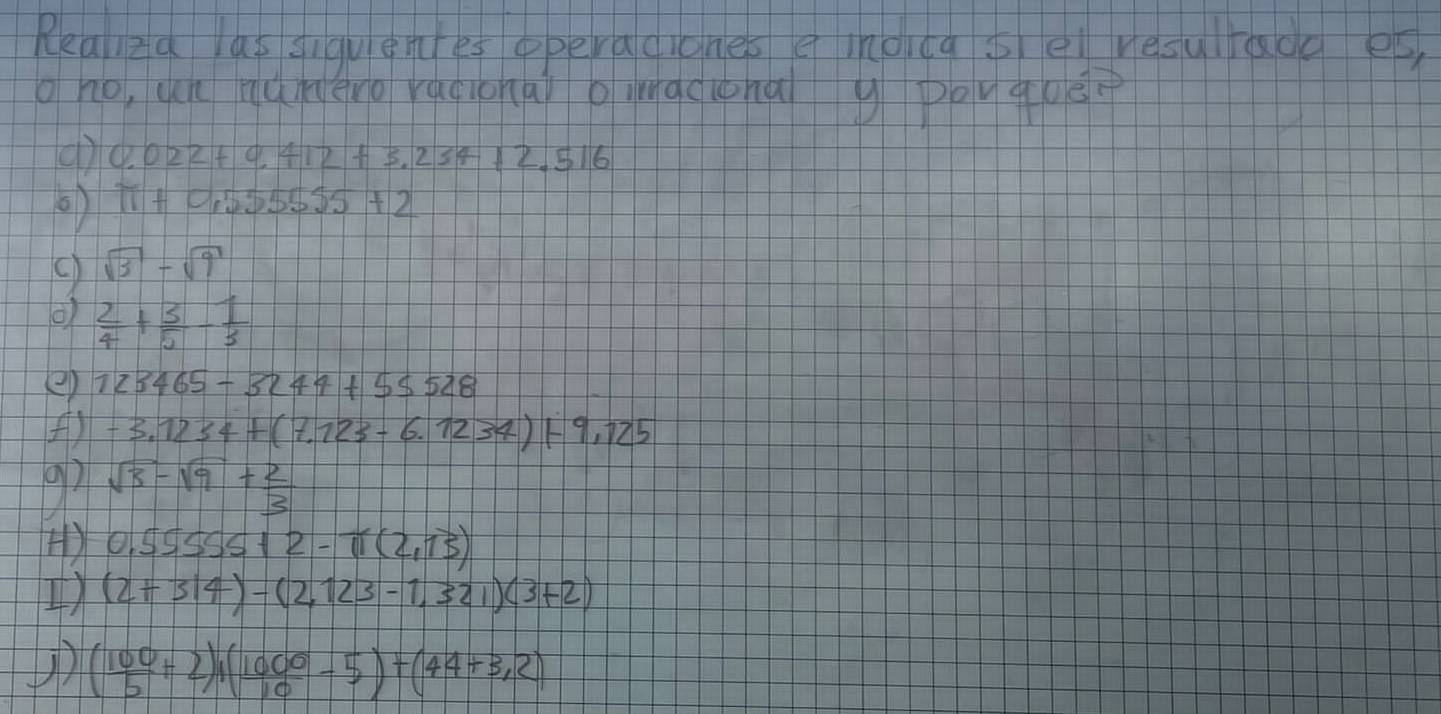 Realiza las siguientes operaciones e indica si el resultado es,
o no, un número racional o irracional y porqué?
a) 0.022 + 0.412 + 3.234 + 2.516
b) π + 0,555555 + 2
c) √3 - √9
d) 2/4 + 3/5 - 1/3
e) 123465 - 3244 + 55528
f) -3.1234 + (7.123 - 6.1234) + 9,125
g) √3 - √9 + 2/3
H) 0,55555 + 2 - π(2,13)
I) (2 + 314) - (2,123 - 1,321)(3+2)
J) (100/5 + 2) + (1000/10 - 5) + (44 + 3,2)